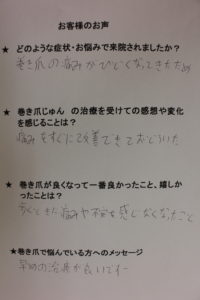 お客様のお声
★ どのような症状・お悩みで来院されましたか？
巻き爪の痛みがひどくなってきたため
★ 巻き爪じゅん の治療を受けての感想や変化
を感じることは？
痛みをすぐに改善できておどろいた
★ 巻き爪が良くなって一番良かったこと、嬉しか
ったことは？
歩くときに痛みや不安を感じなくなったこと
★巻き爪で悩んでいる方へのメッセージ
早めの治療が良いですー